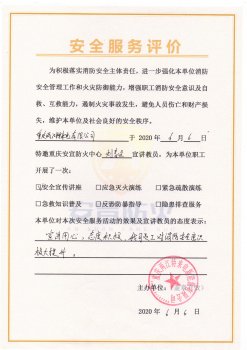 安全服务评价
为积极落实消防安全主体责任，进一步强化本单位消防
安全管理工作和火灾防御能力，增强职工消防安全意识及自
救、互救能力，遏制火灾事故发生，避免人员伤亡和财产损
失，维护本单位及社会良好的安全秩序。
于 2020 年 6 月 6 日
特邀重庆安宣防火中心 宣讲教员，为本单位职工
开展了一次：
☑安全宣传讲座 □应急灭火演练 □紧急疏散演练
□急救知识普及 □反恐防暴指导 □隐患排查服务
本单位对本次安全服务活动的效果及宣讲教员的态度表示：
宣讲用心，态度积极，我司员工对消防安全意识
极大提升。
主办单位：
2020 年 6 月 6 日
安宣防火